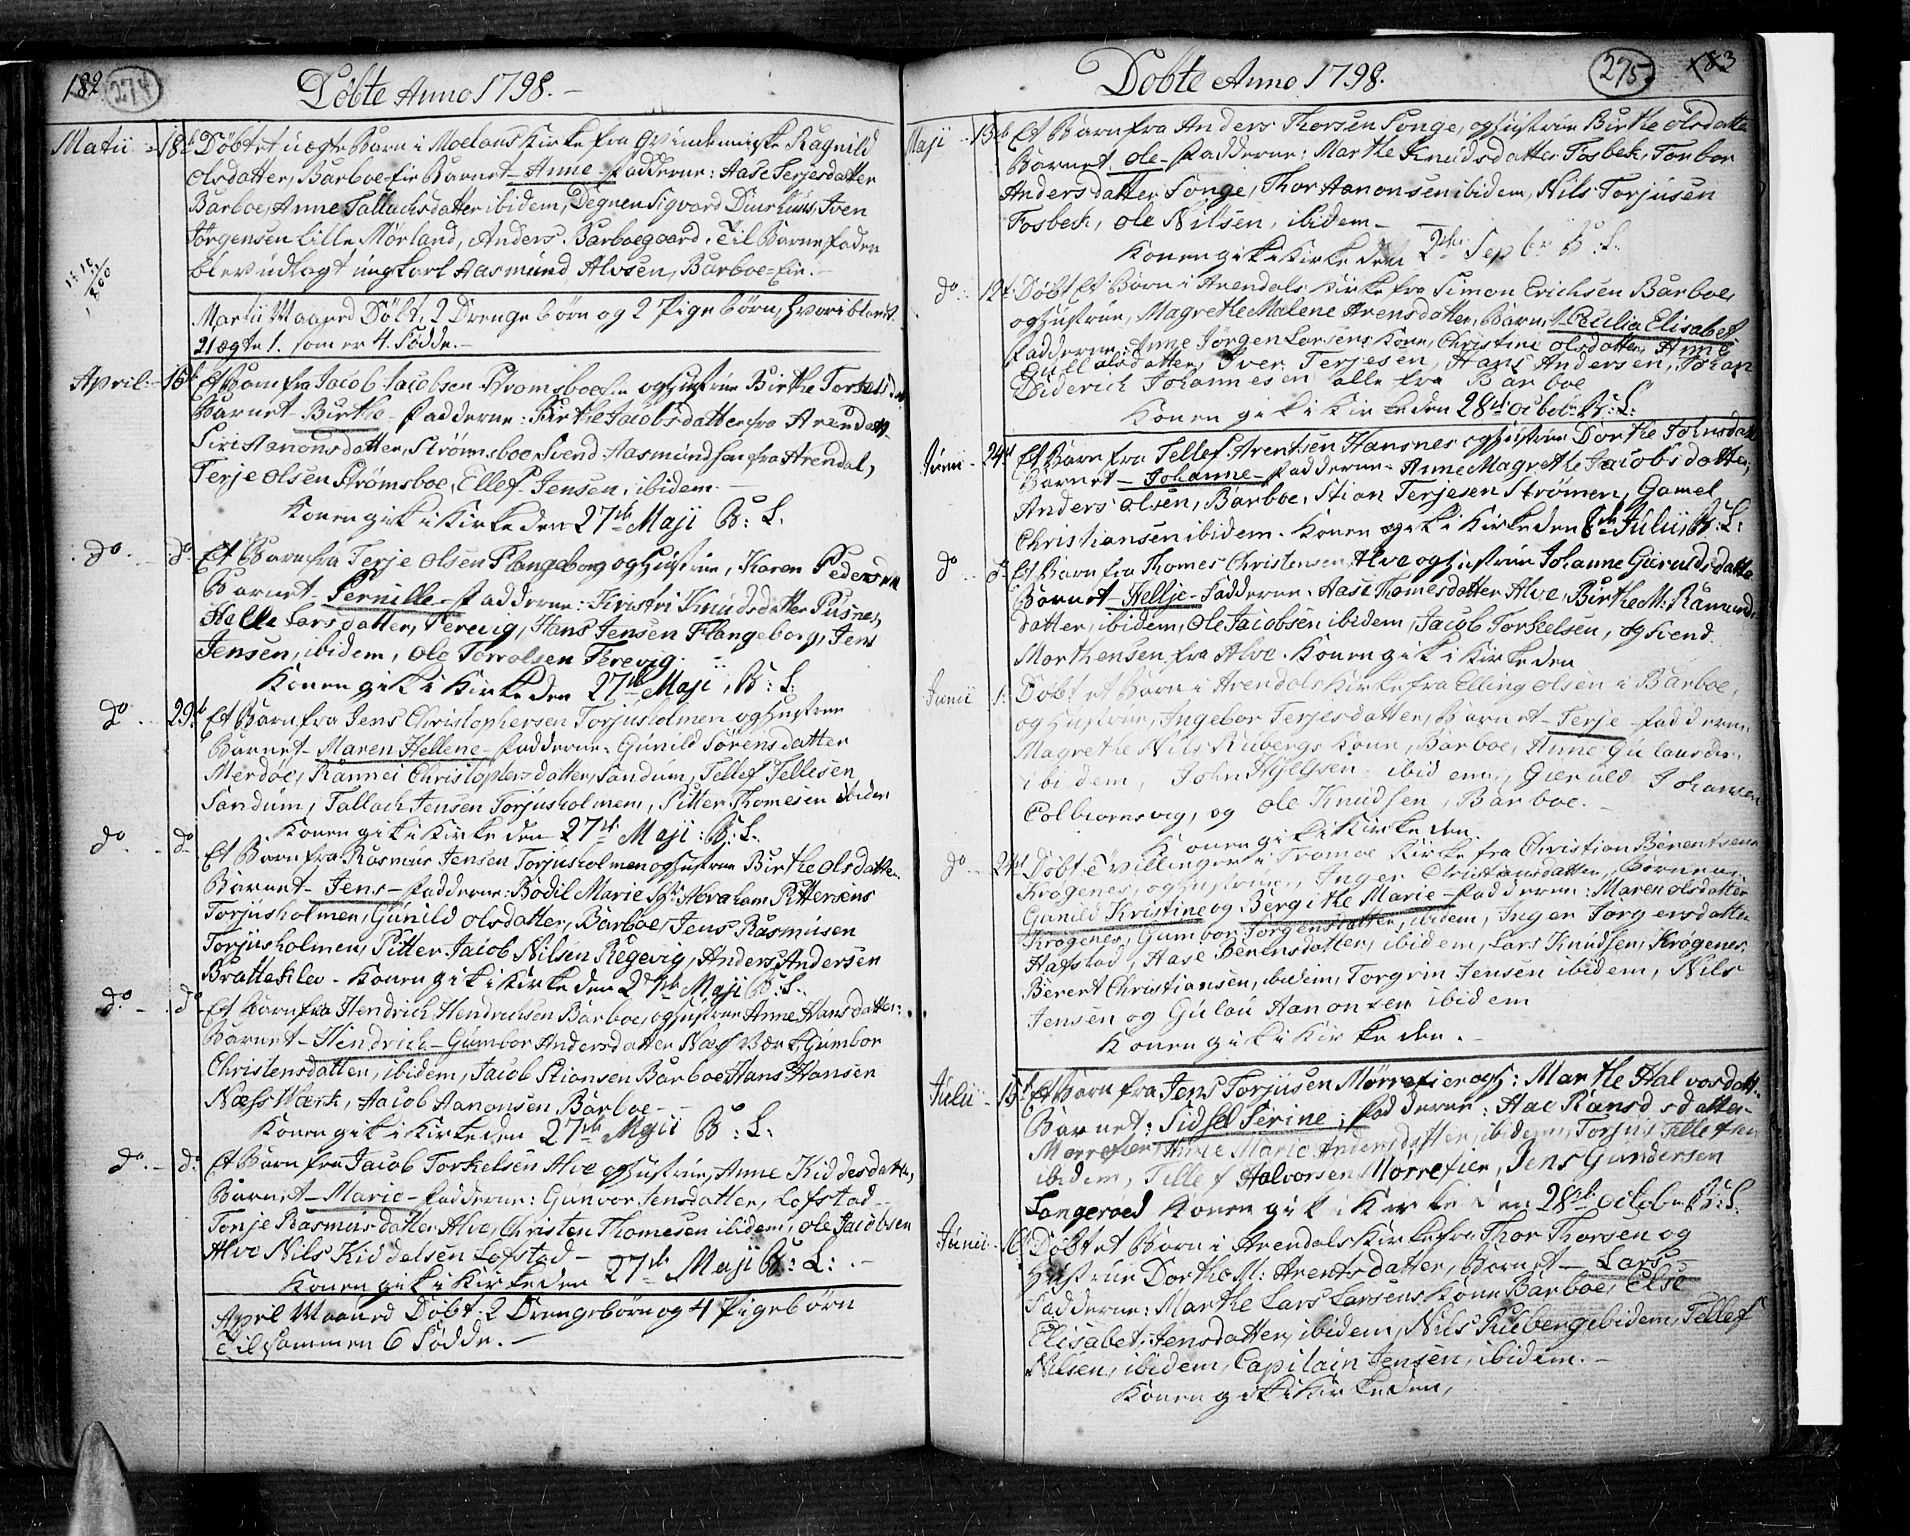 182 274
Döbte Anno 1798.
Martii 18de Döbt et uægte Barn i Moelans Kirke fra Qvindemiske Ragnild
Olsdatter, Barboe-fie Barnet Anne Fadderne: Aase Terjesdatter
Barboe, Anne Tallachsdatter ibidem, Degnen Sigvard Diurhuus, Iven
Jörgensen Lille Mörland, Anders Barboegaard. Til Barnefader
blev udlagt ungkarl Aasmund Alvsen, Barboe-fie.
Martii Maaned Döbt, 2 Drenge börn og 2 Pige börn, hvoriblandt
Uægte 1. som er 4. Födde.
April 15de Et Barn fra Jacob Jacobsen Strömsboe og Hustrue Birthe Torkelsd.
Barnet Birthe Fadderne: Birthe Jacobsdatter fra Arendal,
Siri Aanonsdatter, Strömsboe, Svend Aasmundsen fra Arendal,
Terje Olsen Strömsboe, Ellef Jensen, ibidem.
Konen gik i Kirke den 27de Maji B: L.
do do Et Barn fra Terje Olsen Flangeborg og Hustrue, Karen Peders
Barnet Pernille Fadderne: Kristri Knudsdatter Pusnes,
Helle Larsdatter, Ferevig, Hans Jensen Flangeborg, Jens
Jensen, ibidem, Ole Torvalsen Ferevig.
Konen gik i Kirke den 27de Maji, B: L:
do 29de Et Barn fra Jens Christophersen Torjusholmen og Hustrue
Barnet Maren Hellene Fadderne: Gunild Sörensdatter
Merdöe, Rannei Christophersdatter, Sandum, Tellef Tellesen
Sandum, Tallach Jensen Torjusholmen, Pitter Thomesen ibidem
Konen gik i Kirke den 27de Maji: B: L.
do do Et Barn fra Rasmus Jensen Torjusholmen og Hustrue Birthe Olsdatter
Barnet Jens Fadderne: Bodil Marie Abraham Pittersens
Torjusholmen, Gunild Olsdatter, Barboe, Jens Rasmusen
Torjusholmen, Pitter Jacob Nilsen Regevig, Anders Andersen
Brattekley. Konen gik i Kirke den 27de Maji B: L.
do do Et Barn fra Hendrich Hendrichsen Barboe, og Hustrue Anne Hansdatter:
Barnet Hendrich Gumbor Andersdatter Næs Værk, Gumbor
Christensdatter, ibidem, Jacob Stiansen Barboe, Hans Hansen
Næss Værk, Jacob Aanonsen Barboe
Konen gik i Kirke den 27de Maji B: L:
do do Et Barn fra Jacob Torkelsen Alve og Hustrue, Anne Kiddesdatter,
Barnet Marie Fadderne: Gunvor Jensdatter, Lofstad
Tonje Rasmusdatter Alve, Christen Thomesen ibidem, Ole Jacobsen
Alve Nils Kiddelsen Lofstad
Konen gik i Kirke den 27de Maji B: L:
April Maaned Döbt: 2 Drengebörn og 4 Pigebörn
Tilsammen 6 Födde.
275 183
Döbte Anno 1798.
Maji 13de Et Barn fra Anders Thorsen Songe, og Hustrue Birthe Olsdatter
Barnet Ole Fadderne: Marthe Knudsdatter Fosbek, Torbor
Andersdatter Songe, Thor Aanonsen ibidem, Nils Torjusen
Fosbech, Ole Nilsen, ibidem
Konen gik i Kirke den 2de Sepbr B: L.
do 12. Döbt Et Barn i Arendals Kirke fra Simon Erichsen Barboe,
og Hustrue, Magrethe Malene Arensdatter, Barnet Cecilia Elisabet
Fadderne: Anne Jörgen Larsens Kone, Christine Olsdatter, Anne
Olsdatter, Iver Terjesen, Hans Andersen, Johan
Diderich Johannesen alle fra Barboe
Konen gik i Kirke den 28de octobr B: L:
Junii 24de Et Barn fra Tellef Arentsen Hansnes og Hustrue Dorthe Johnsdatt
Barnet Johanne Fadderne Anne Magrethe Jacobsdatter,
Anders Olsen, Barboe, Stian Terjesen Strömen, Gamel
Christiansen ibidem. Konen gik i Kirke den 8de Julii, B: L:
do do Et Barn fra Thomes Christensen Alve og Hustrue Johanne Guruldsdatter
Barnet Hellje Fadderne: Aase Thomesdatter Alve, Birthe M: Ramunds
datter, ibidem, Ole Jacobsen ibidem, Jacob Torkelsen, og Svend
Morthensen fra Alve. Konen gik i Kirke den
Junii 1. Döbt et Barn i Arendals Kirke fra Elling Olsen i Barboe,
og Hustrue, Ingebor Terjesdatter, Barnet Terje Fadderne
Magrethe Nils Rubergs Kone, Barboe, Anne Gulausdtr.
ibidem, John Hyllsen ibidem, Gieruld Johansen
Colbiornsvig, og Ole Knudsen, Barboe.
Konen gik i Kirke den
do 24de Döbt Tvillinger i Tromöe Kirke fra Christian Berentsen
Krögenes, og Hustrue, Inger Christiansdatter, Börnene,
Gunild Kristine og Bergithe Marie Fadderne: Maren Olsdatter
Krögenes, Gumbor Jörgensdatter, ibidem, Inger Jörgensdatter
Hafstad, Aase Berensdatter, ibidem, Lars Knudsen, Krögenes,
Berent Christiansen, ibidem, Torgrim Jensen ibidem, Nils
Jensen og Gulau Aanonsen ibidem
Konen gik i Kirke den.
Julii 15de Et Barn fra Jens Torjusen Mörrefier og H: Marthe Halvorsdatt.
Barnet: Sidsel Serine; Fadderne: Aae Ransdsdatter
Mörrefier, Anne Marie Andersdatter, ibidem, Torjus Tellefsen
ibidem, Tellef Halvorsen Mörrefier, Jens Gundersen
Langeroed Konen gik i Kirke den 28de octobr B: L.
Junii 16. Döbt et Barn i Arendals Kirke fra Thor Thorsen og
Hustrue Dorthe M: Arentsdatter, Barnet Lars
Fadderne: Marthe Lars Larsens Kone Barboe, Else
Elisabet Jensdatter, ibidem, Nils Ruberg ibidem, Tellef
Nilsen, ibidem, Capitain Jensen, ibidem.
Konen gik i Kirke den,